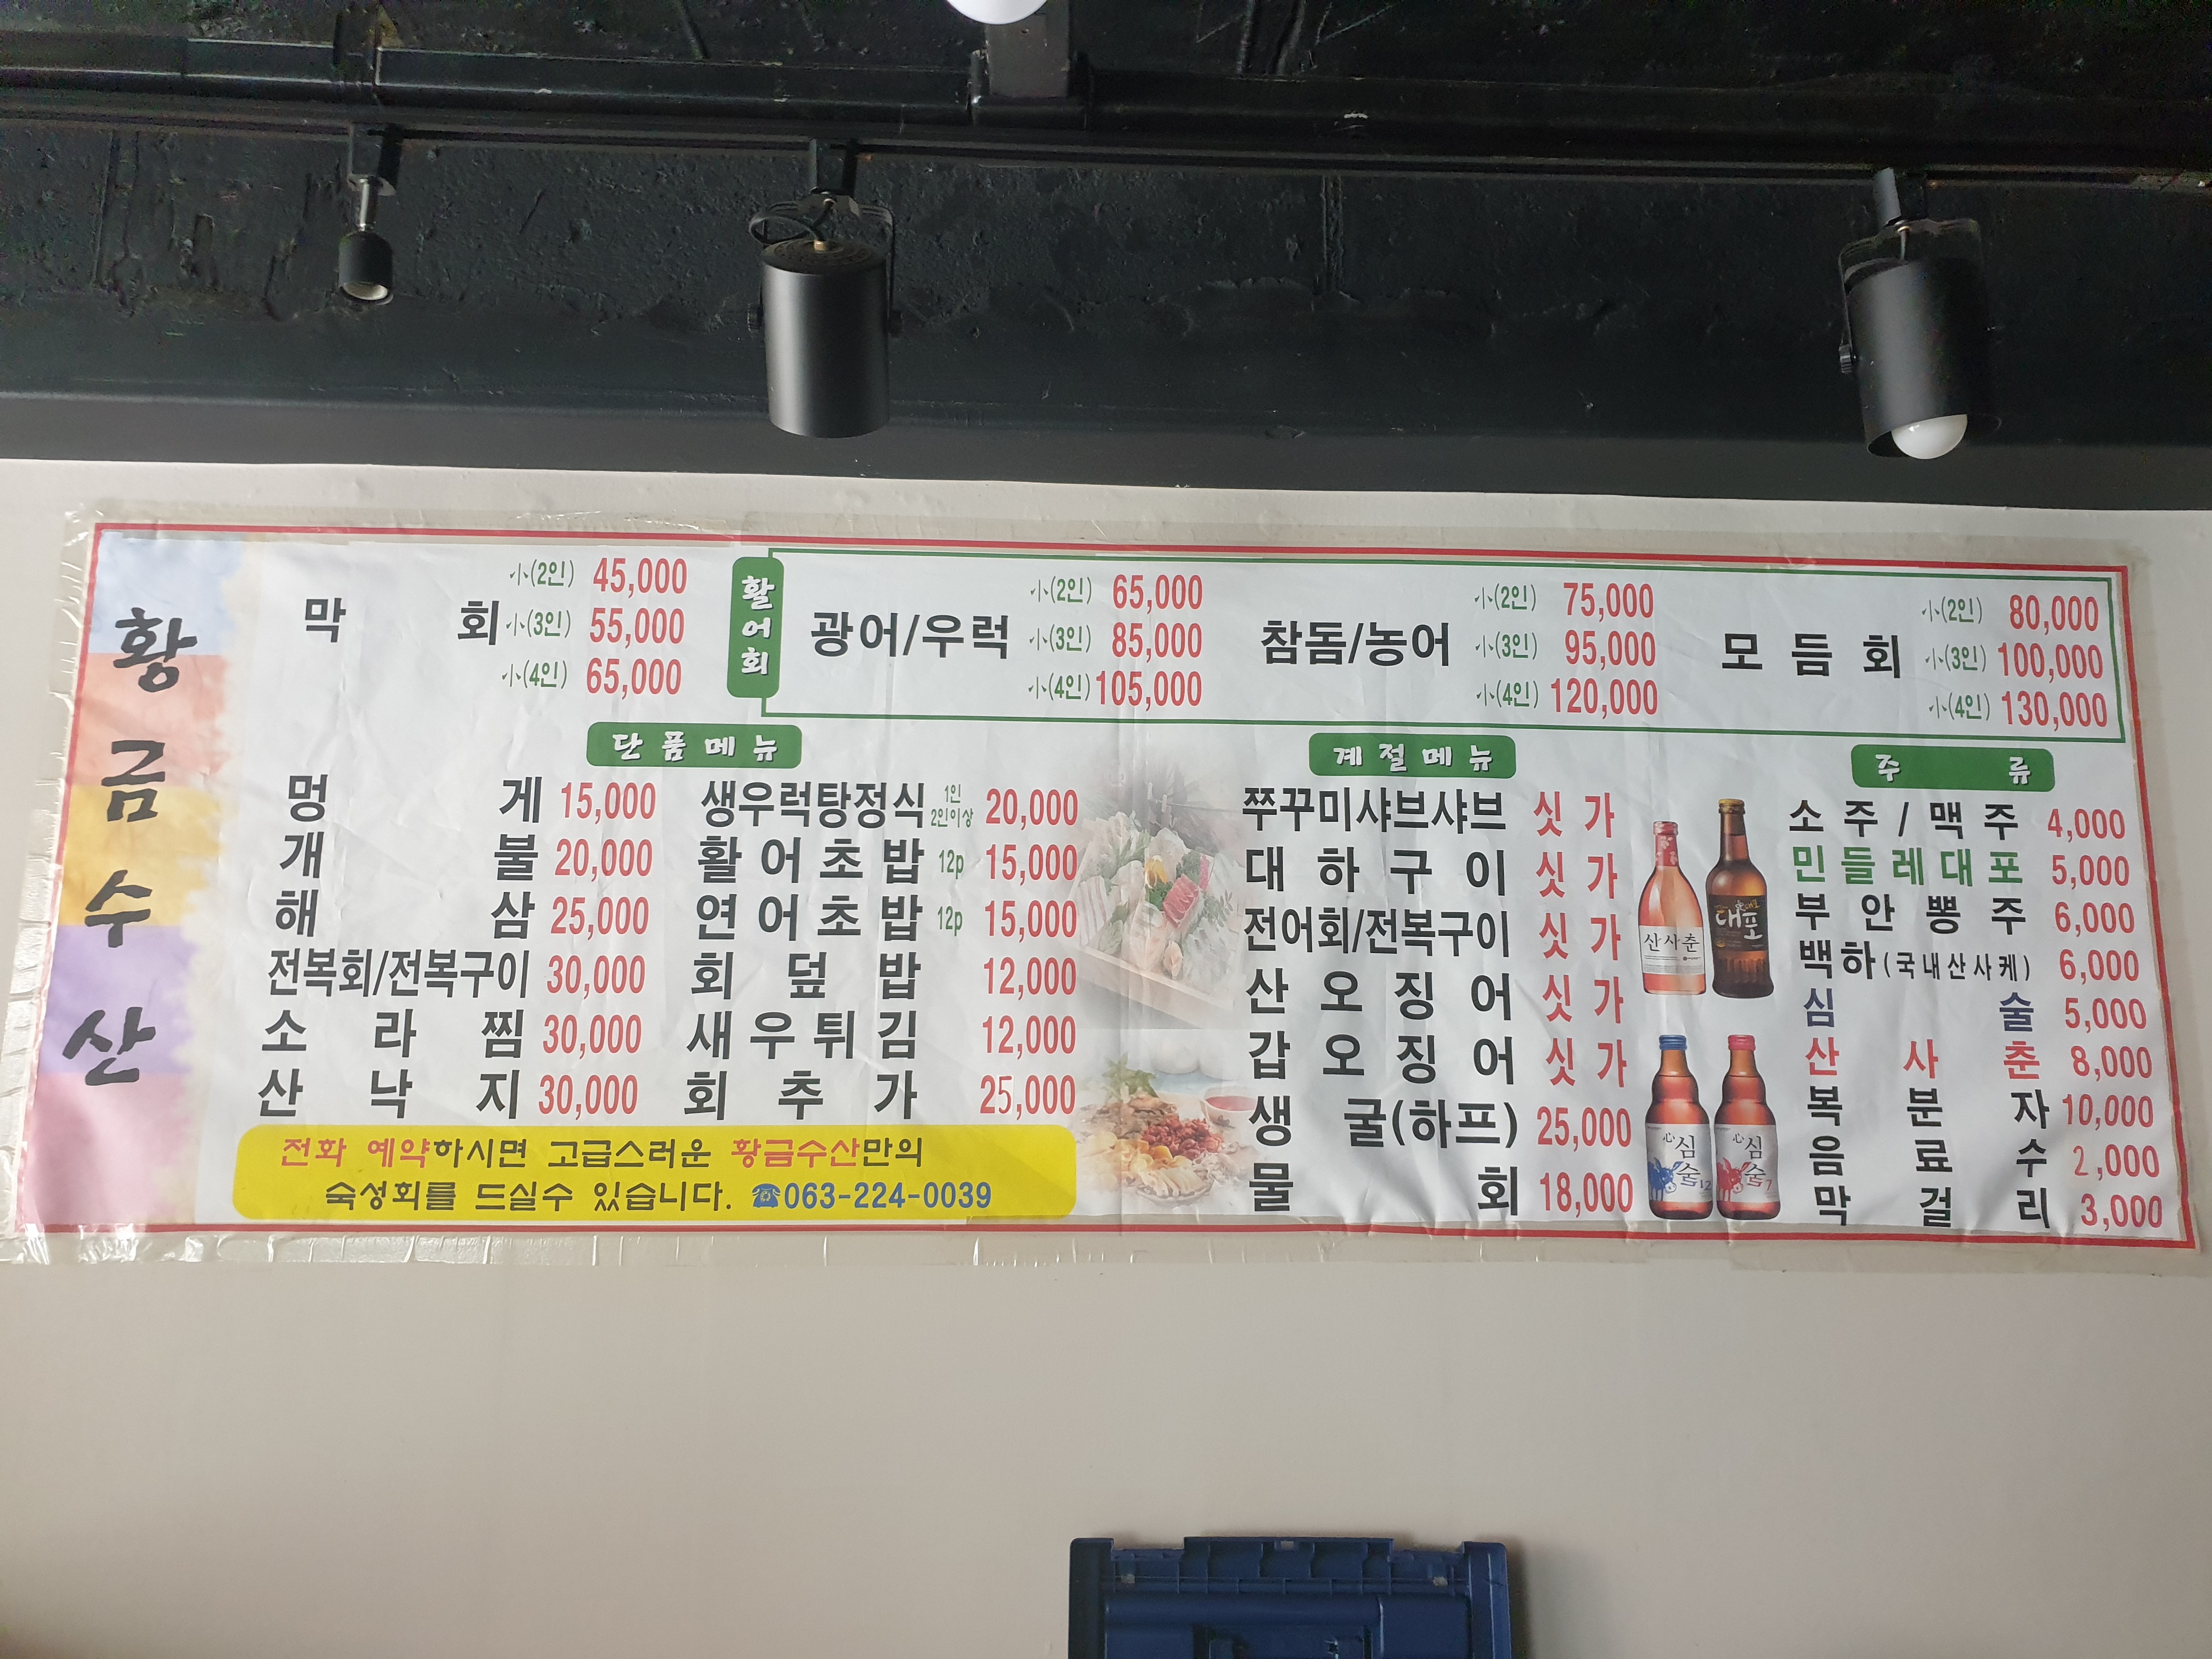 황금수산
막 회 小(2인) 45,000
小(3인) 55,000
小(4인) 65,000
활어회
광어/우럭 小(2인) 65,000
小(3인) 85,000
小(4인) 105,000
참돔/농어 小(2인) 75,000
小(3인) 95,000
小(4인) 120,000
모듬회 小(2인) 80,000
小(3인) 100,000
小(4인) 130,000
단품메뉴
멍 게 15,000
개 불 20,000
해 삼 25,000
전복회/전복구이 30,000
소 라 찜 30,000
산 낙 지 30,000
생우럭탕정식 1인 2인이상 20,000
활어초밥 12p 15,000
연어초밥 12p 15,000
회 덮 밥 12,000
새우튀김 12,000
회 추 가 25,000
전화 예약하시면 고급스러운 황금수산만의
숙성회를 드실수 있습니다. ☎063-224-0039
계절메뉴
쭈꾸미샤브샤브 싯가
대 하 구 이 싯가
전어회/전복구이 싯가
산 오 징 어 싯가
갑 오 징 어 싯가
생 굴(하프) 25,000
물 회 18,000
산사춘
대포
心심술12
心심술7
주 류
소주/맥주 4,000
민들레대포 5,000
부안뽕주 6,000
백하(국내산사케) 6,000
심 술 5,000
산 사 춘 8,000
복 분 자 10,000
음 료 수 2,000
막 걸 리 3,000